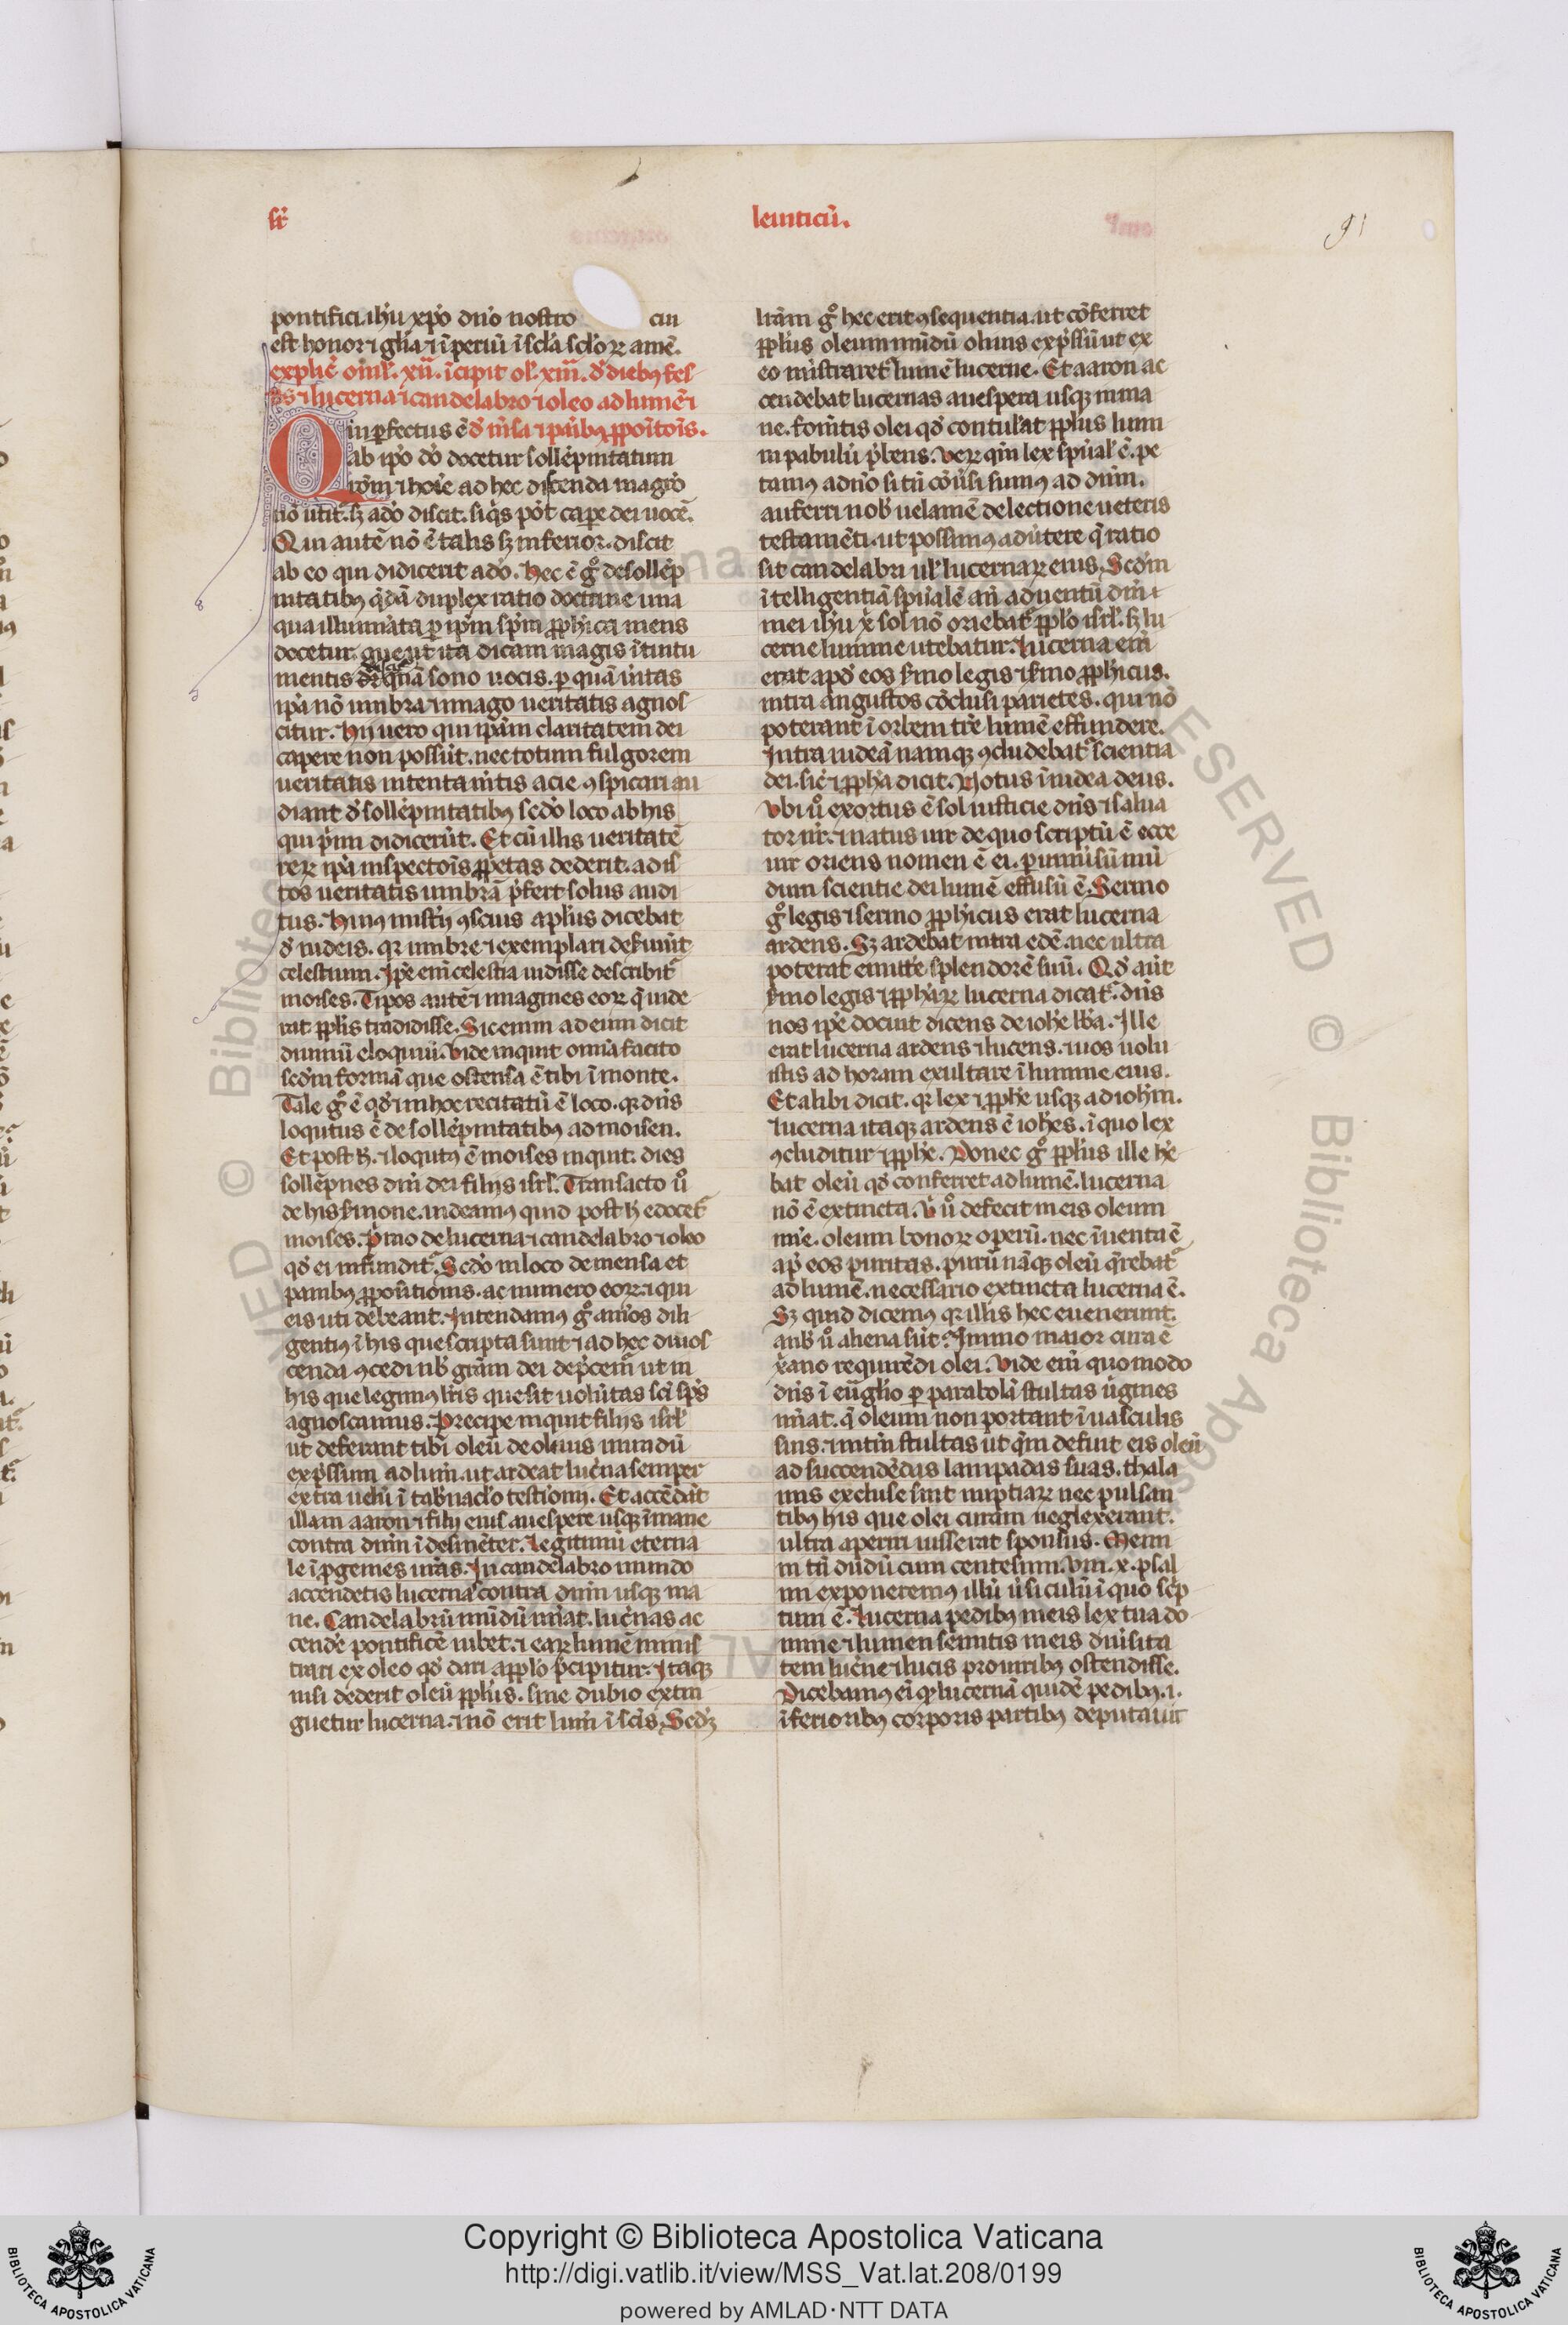 sr̄
leuiticū.
91
pontifici. ihū xp̄o dn̄o nostro cui
est honor ⁊ glīa ⁊ īperiū ī scl̄a scl̄oꝝ amē.
explic̄ omīl. xii. īcipit ol. xiii. d̄ diebꝫ fes
tis ⁊ lucerna ⁊ candelabro ⁊ oleo ad lumē ⁊
Qui ꝑfectus ē d̄ mīsa ⁊ panibꝫ ꝓpoītōis.
ab ip̄o dō docetur sollēpnitatum
rōm̄ ⁊ hoīe ad hec discenda magr̄o
nō utit̄. sꝫ a dō discit. si q̄s pōt caꝑe dei uocē.
Qui autē nō ē talis sꝫ inferior. discit
ab eo qui didicerit a dō. Hec ē gͦ de sollēp
nitatibꝫ q̄dā duplex ratio doctrine una
qua illuminata ꝑ ip̄m sp̄m ꝓph̄ica mens
docetur. que ut ita dicam magis ītuitu
mentis discit̄ quā sono uocis. ꝑ quā ūitas
ip̄a nō umbra ⁊ imago ueritatis agnos
citur. Hij uero qui ip̄am claritatem dei
capere non possūt. nec totum fulgorem
ueritatis intenta mītis acie ꝯspicari au
diant d̄ sollēpnitatibꝫ scd̄o loco ab his
qui p̄m̄ didicerūt. Et cū illis ueritatē
reꝝ ip̄a inspectōis ꝓp̄etas dederit. ad is
tos ueritatis umbrā p̄fert solus audi
tus. Huiꝰ mist̄ij ꝯscius apl̄us dicebat
d̄ iudeis. qr umbre ⁊ exemplari deſuiūt
celestium. Ip̄e em̄ celestia uidisse describit̄
moises. Tipos autē ⁊ imagines eoꝝ q̄ uide
rat ppl̄is tradidisse. Sic enim ad eum dicit
diuinū eloquiū. Vide inquit omīa facito
scd̄m formā que ostensa ē tibi ī monte.
Tale gͦ ē qd̄ in hoc recitatū ē loco. qr dn̄s
loqutus ē de sollēpnitatibꝫ ad moisen.
Et post h̄. ⁊ loqutꝰ ē moises inquit. dies
sollēpnes dn̄i dei filijs isrl̄. Transacto ū
de his s̄mone. uideamꝰ quid post h̄ edocet̄
moises. P̄mo de lucerna ⁊ candelabro ⁊ oleo
qd̄ ei infundit̄. Scd̄o in loco de mensa et
panibꝫ ꝓpoīitionis. ac numero eoꝝ. ⁊ qui
eis uti debeant. Intendamus gͦ animos dili
gentiꝰ ī his que scripta sunt ⁊ ad hec dinos
cenda ꝯcedi nob̄ grām dei dep̄cem̄ ut in
his que legimꝰ l̄ris que sit uolūtas sc̄i sp̄s
agnoscamus. Precipe inquit filijs isrl̄
ut deferant tibi oleū de oliuis mundū
exp̄ssum ad lum̄. ut ardeat luc̄na semper
extra uelū ī tab̄naclo testionij. Et accēdāt
illam aaron ⁊ filij eius a uespere usqꝫ ī mane
contra dn̄m īdesinēter. Legitimū eterna
le ī ꝓgenies ur̄as. In candelabro mundo
accendetis lucernas contra dn̄m usqꝫ ma
ne. Candelabrū mūdū nīat. luc̄nas ac
cendē pontificē iubet. ⁊ eaꝝ lumē minis
trari ex oleo qd̄ dari a ppl̄o p̄cipitur. Itaqꝫ
nisi dederit oleū ppl̄us. sine dubio extin
guetur lucerna. ⁊ nō erit lum̄ ī sc̄is. Sed ꝫ
gͦ hec erit ꝯsequentia. ut cōferret
ppl̄us oleum mūdū oliuis exp̄ssū ut ex
eo mīstraret̄ lumē lucerne. Et aaron ac
cendebat lucernas a uespera usqꝫ in ma
ne. fomītis olei qd̄ contulat ppl̄us lumi
ni pabulū p̄bens. Verꝝ qm̄ lex spūal̄ ē. pe
tamꝰ a dn̄o si tn̄ cōūsi sumꝰ ad dn̄m.
auferri nob̄ uelamē de lectione ueteris
testamēti. ut possimꝰ aduertere q̄ ratio
sit candelabri ul̄ lucernaꝝ eius. Scd̄m
ītelligentiā spūalē an̄ aduentū dn̄i
mei ihū x̄ sol nō oriebat̄ ppl̄o isrl̄. sꝫ lu
cerne lumine utebatur. Lucerna em̄
erat apd̄ eos s̄mo legis ⁊ s̄mo ꝓph̄icus.
intra angustos cōclusi parietes. qui nō
poterant ī orbem tr̄e lumē effundere.
Intra iudeā namqꝫ ꝯcludebat̄ scientia
dei. sic̄ ⁊ ꝓph̄a dicit. Notus ī iudea deus.
Vbi ū exortus ē sol iusticie dn̄s ⁊ salua
tor nr̄. ⁊ natus uir de quo scriptū ē ecce
uir oriens nomen ē ei. ꝑ uniūsū mū
dum scientie dei lumē effusū ē. Sermo
gͦ legis ⁊ sermo ꝓph̄icus erat lucerna
ardens. Sꝫ ardebat intra edē. nec ultra
poterat emittē splendorē suū. Qd̄ aūt
s̄mo legis ⁊ ꝓph̄aꝝ lucerna dicat̄. dn̄s
nos ip̄e docuit dicens de ioh̄e bb̄a. Ille
erat lucerna ardens ⁊ lucens. ⁊ uos uolu
istis ad horam exultare ī lumine eius.
Et alibi dicit. qr lex ⁊ ꝓph̄e usqꝫ ad ioh̄m.
Lucerna itaqꝫ ardens ē ioh̄es. ī quo lex
ꝯcluditur ⁊ ꝓph̄e. Donec gͦ ppl̄us ille h̄e
bat oleū qd̄ conferret ad lumē. lucerna
nō ē extincta. V̄ ū defecit in eis oleum
mīe. oleum bonoꝝ operū. nec īuenta ē
ap̄ eos puritas. purū nāqꝫ oleū q̄rebat̄
ad lumē. necessario extincta lucerna ē.
Sꝫ quid dicemꝰ qr illis hec euenerunt.
a nob̄ ū aliena sūt? Immo maior cura ē
x̄ano requirēdi olei. Vide em̄ quomodo
dn̄s ī eūglio ꝑ parabolā stultas ūgines
nīat. q̄ oleum non portant ī uasculis
suis. ⁊ intm̄ stultas ut qm̄ defuit eis oleū
ad succendēdas lampadas suas. thala
mis excluse sint nuptiaꝝ nec pulsan
tibꝫ his que olei curam neglexerant.
ultra aperiri iusserat sponsus. Memi
ni tn̄ dudū cum centesim. viii. x. psal
mi exponeremꝰ illū ūsiculū ī quo scp
tum ē. Lucerna pedibꝫ meis lex tua do
mine ⁊ lumen semitis meis diūsita
tem luc̄ne ⁊ lucis pro uiribꝫ ostendisse.
Dicebamꝰ em̄ qꝫ lucernā quidē pedibꝫ. i.
īferioribꝫ corporis partibꝫ deputauit
Copyright © Biblioteca Apostolica Vaticana
http://digi.vatlib.it/view/MSS_Vat.lat.208/0199
powered by AMLAD·NTT DATA
BIBLIOTECA APOSTOLICA VATICANA
BIBLIOTECA APOSTOLICA VATICANA